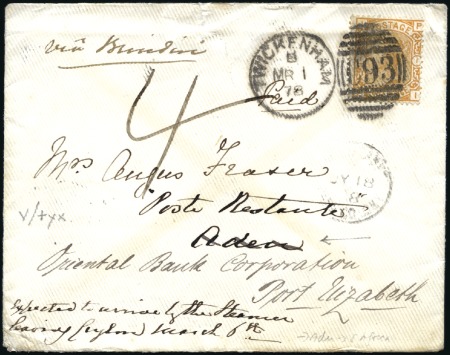 via Brindisi
TWICKENHAM
MR 1
78
POSTAGE
P
I
93
Paid
4
Mrs Angus Fraser
Poste Restante
JY 18
Aden
v/+yx
Oriental Bank Corporation
Port Elizabeth
Expected to arrive by the Steamer
leaving Ceylon March 6th